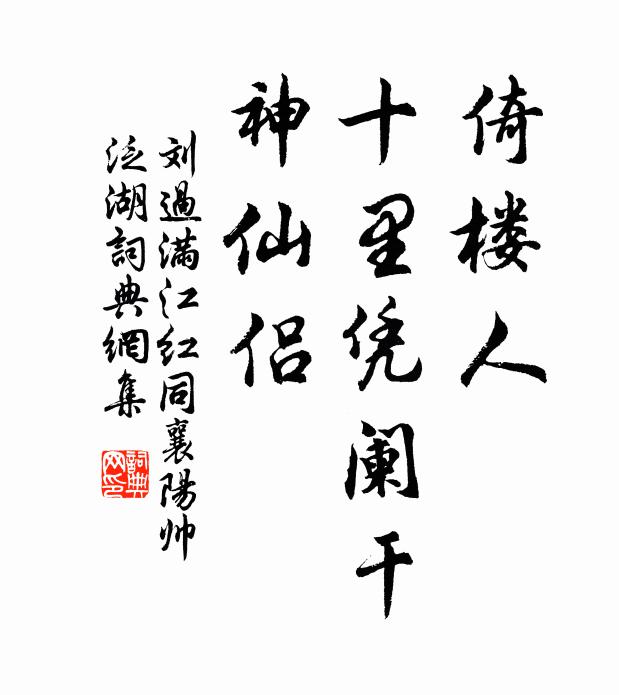 倚楼人
十里凭阑干
神仙侣
刘過满江红同襄陽帅
泛湖詞典網集
詞典
网印